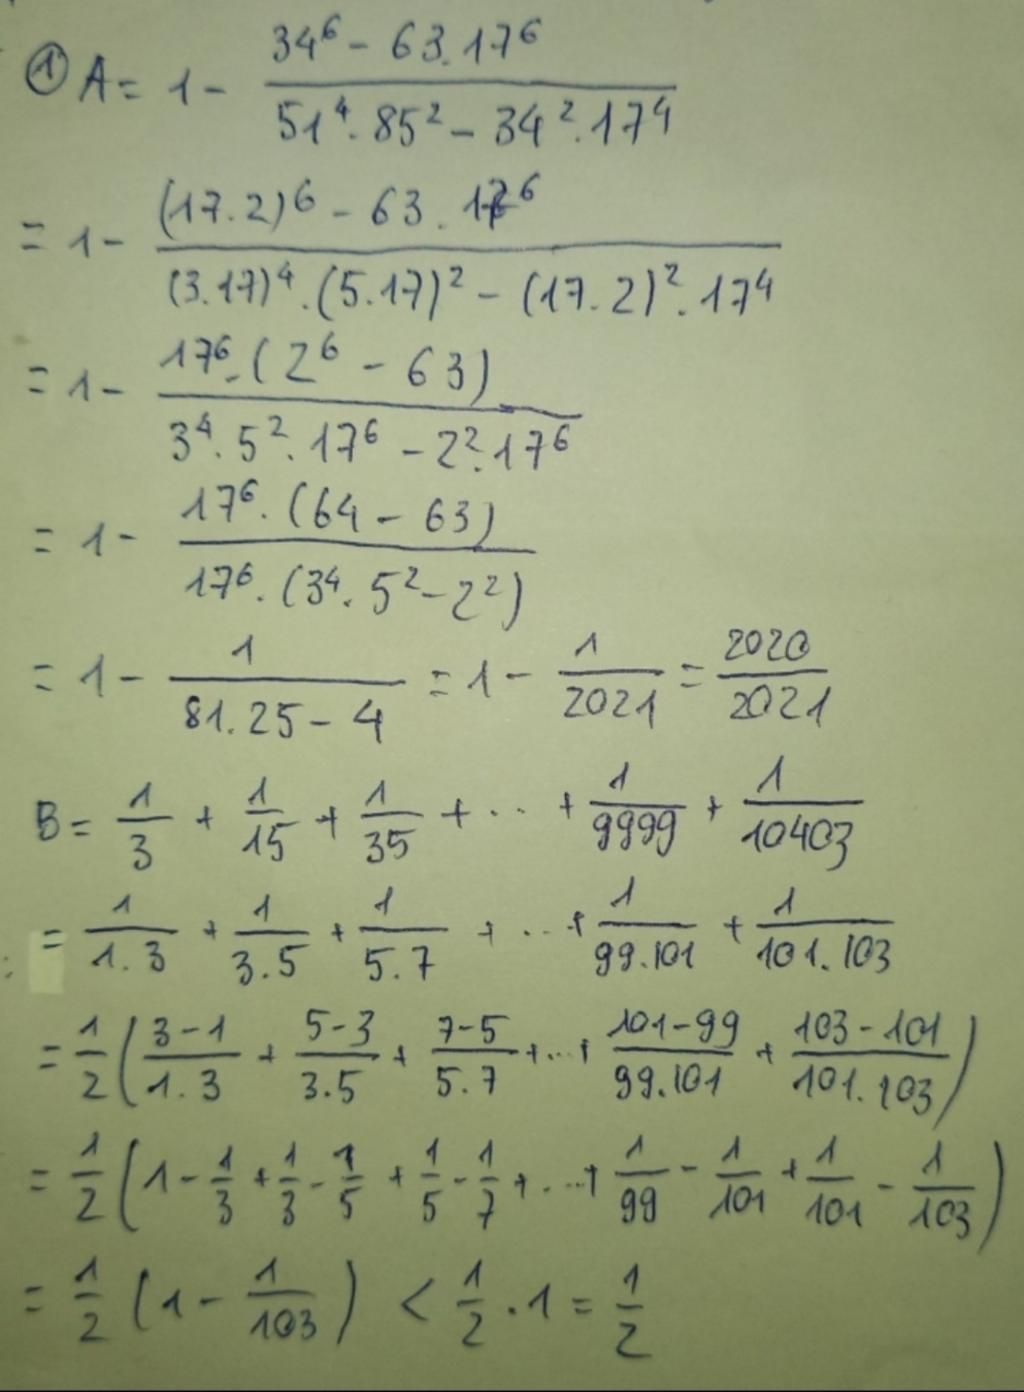 ① A = 1 - (34⁶ - 63.17⁶)/(51⁴.85² - 34².17⁴)
= 1 - ((17.2)⁶ - 63.17⁶)/((3.17)⁴.(5.17)² - (17.2)².17⁴)
= 1 - (17⁶.(2⁶ - 63))/(3⁴.5².17⁶ - 2².17⁶)
= 1 - (17⁶.(64 - 63))/(17⁶.(3⁴.5² - 2²))
= 1 - 1/(81.25 - 4) = 1 - 1/2021 = 2020/2021
B = 1/3 + 1/15 + 1/35 + ... + 1/9999 + 1/10403
= 1/(1.3) + 1/(3.5) + 1/(5.7) + ... + 1/(99.101) + 1/(101.103)
= 1/2 ((3-1)/(1.3) + (5-3)/(3.5) + (7-5)/(5.7) + ... + (101-99)/(99.101) + (103-101)/(101.103))
= 1/2 (1 - 1/3 + 1/3 - 1/5 + 1/5 - 1/7 + ... + 1/99 - 1/101 + 1/101 - 1/103)
= 1/2 (1 - 1/103) < 1/2 . 1 = 1/2